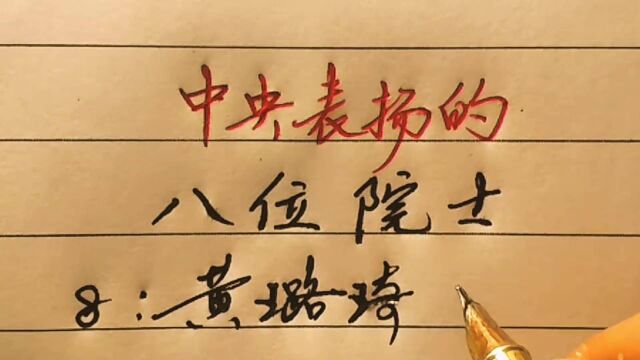 中央表扬的
八位院士
8:黄璐琦